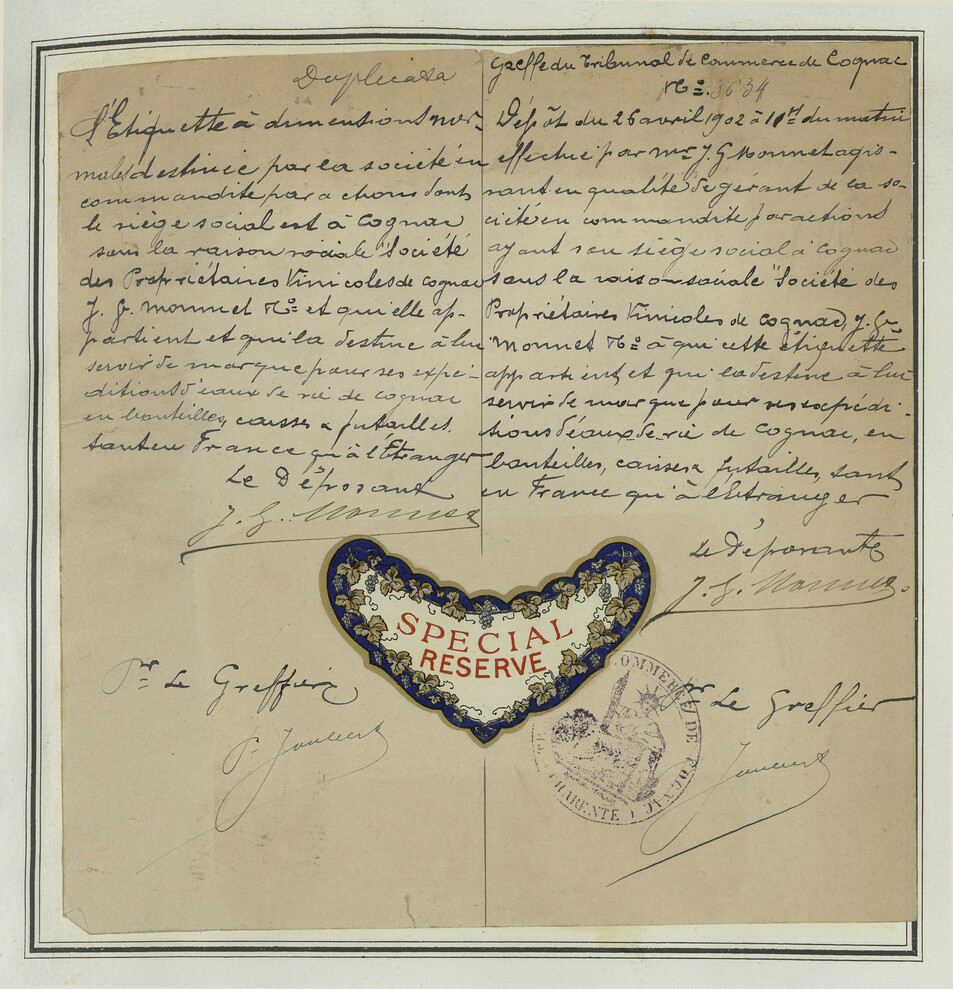 Duplicata
L'Etiquette à dimensions nor-
males destinée par la société en
commandite par actions dont
le siège social est à Cognac
sous la raison sociale "Société
des Propriétaires Vinicoles de Cognac
J. G. Monnet & Cº et qui elle ap-
partient et qui la destine à lui
servir de marque pour ses expé-
ditions d'eaux de vie de Cognac
en bouteilles, caisses & futailles.
tant en France qu'à l'Etranger
Le Déposant
J. G. Monnet
Pr Le Greffier
Greffe du Tribunal de Commerce de Cognac
Nº. 3634
Dépôt du 26 avril 1902 à 10 hs du matin
effectué par Mr J. G Monnet agis-
sant en qualité de gérant de la so-
ciété en commandite par actions
ayant son siège social à Cognac
sous la raison sociale "Société des
Propriétaires Vinicoles de Cognac, J. G.
Monnet & Cº à qui cette étiquette
appartient et qui la destine à lui
servir de marque pour ses expédi-
tions d'eaux de vie de Cognac, en
bouteilles, caisses & futailles, tant
en France qu'à l'Etranger
Le Déposant
J. G. Monnet
Pr Le Greffier
SPECIAL
RESERVE
COMMERCE DE COGNAC
CHARENTE